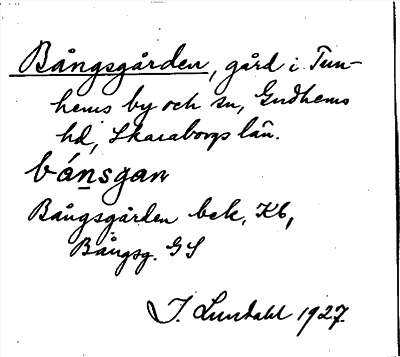 Bångsgården, gård i Tun-
hems by och sn, Gudhems
hd, Skaraborgs län.
bánsgan
Bångsgården bek, Kb,
Bångsg. GS
I. Lundahl 1927.